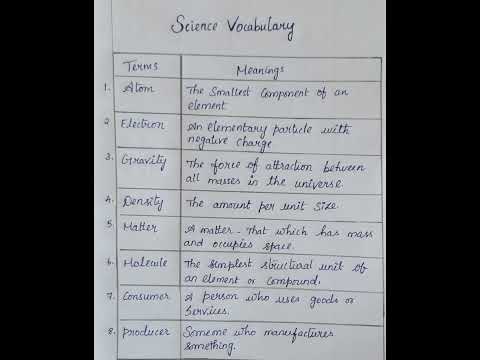 Science Vocabulary
Terms Meanings
1. Atom The Smallest Component of an
element
2 Electron An elementary particle with
negative charge
3. Gravity The force of attraction between
all masses in the universe.
4. Density The amount per unit size.
5. Matter A matter - That which has mass
and occupies space.
6. Molecule The simplest structural unit of
an element or compound.
7. Consumer A person who uses goods or
services.
8. Producer Someone who manufactures
something.